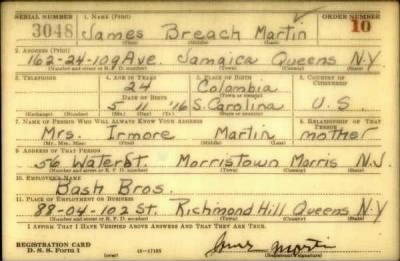 SERIAL NUMBER 1. NAME (Print) ORDER NUMBER
3048 James Breach Martin 10
(First) (Middle) (Last)
2. ADDRESS (Print)
162-24-109 Ave. Jamaica Queens N.Y
(Number and street or R. F. D. number) (Town) (County) (State)
3. TELEPHONE 4. AGE IN YEARS 5. PLACE OF BIRTH 6. COUNTRY OF CITIZENSHIP
24 Columbia
DATE OF BIRTH (Town or county)
5 11 '16 S. Carolina U.S
(Exchange) (Number) (Mo.) (Day) (Yr.) (State or country)
7. NAME OF PERSON WHO WILL ALWAYS KNOW YOUR ADDRESS 8. RELATIONSHIP OF THAT PERSON
Mrs. Irmore Martin mother
(Mr., Mrs., Miss) (First) (Middle) (Last)
9. ADDRESS OF THAT PERSON
56 Water St. Morristown Morris N.J.
(Number and street or R. F. D. number) (Town) (County) (State)
10. EMPLOYER'S NAME
Bash Bros.
11. PLACE OF EMPLOYMENT OR BUSINESS
89-04-102 St. Richmond Hill Queens N.Y
(Number and street or R. F. D. number) (Town) (County) (State)
I AFFIRM THAT I HAVE VERIFIED ABOVE ANSWERS AND THAT THEY ARE TRUE.
REGISTRATION CARD
D. S. S. Form 1 (over) 16-17105 James Martin